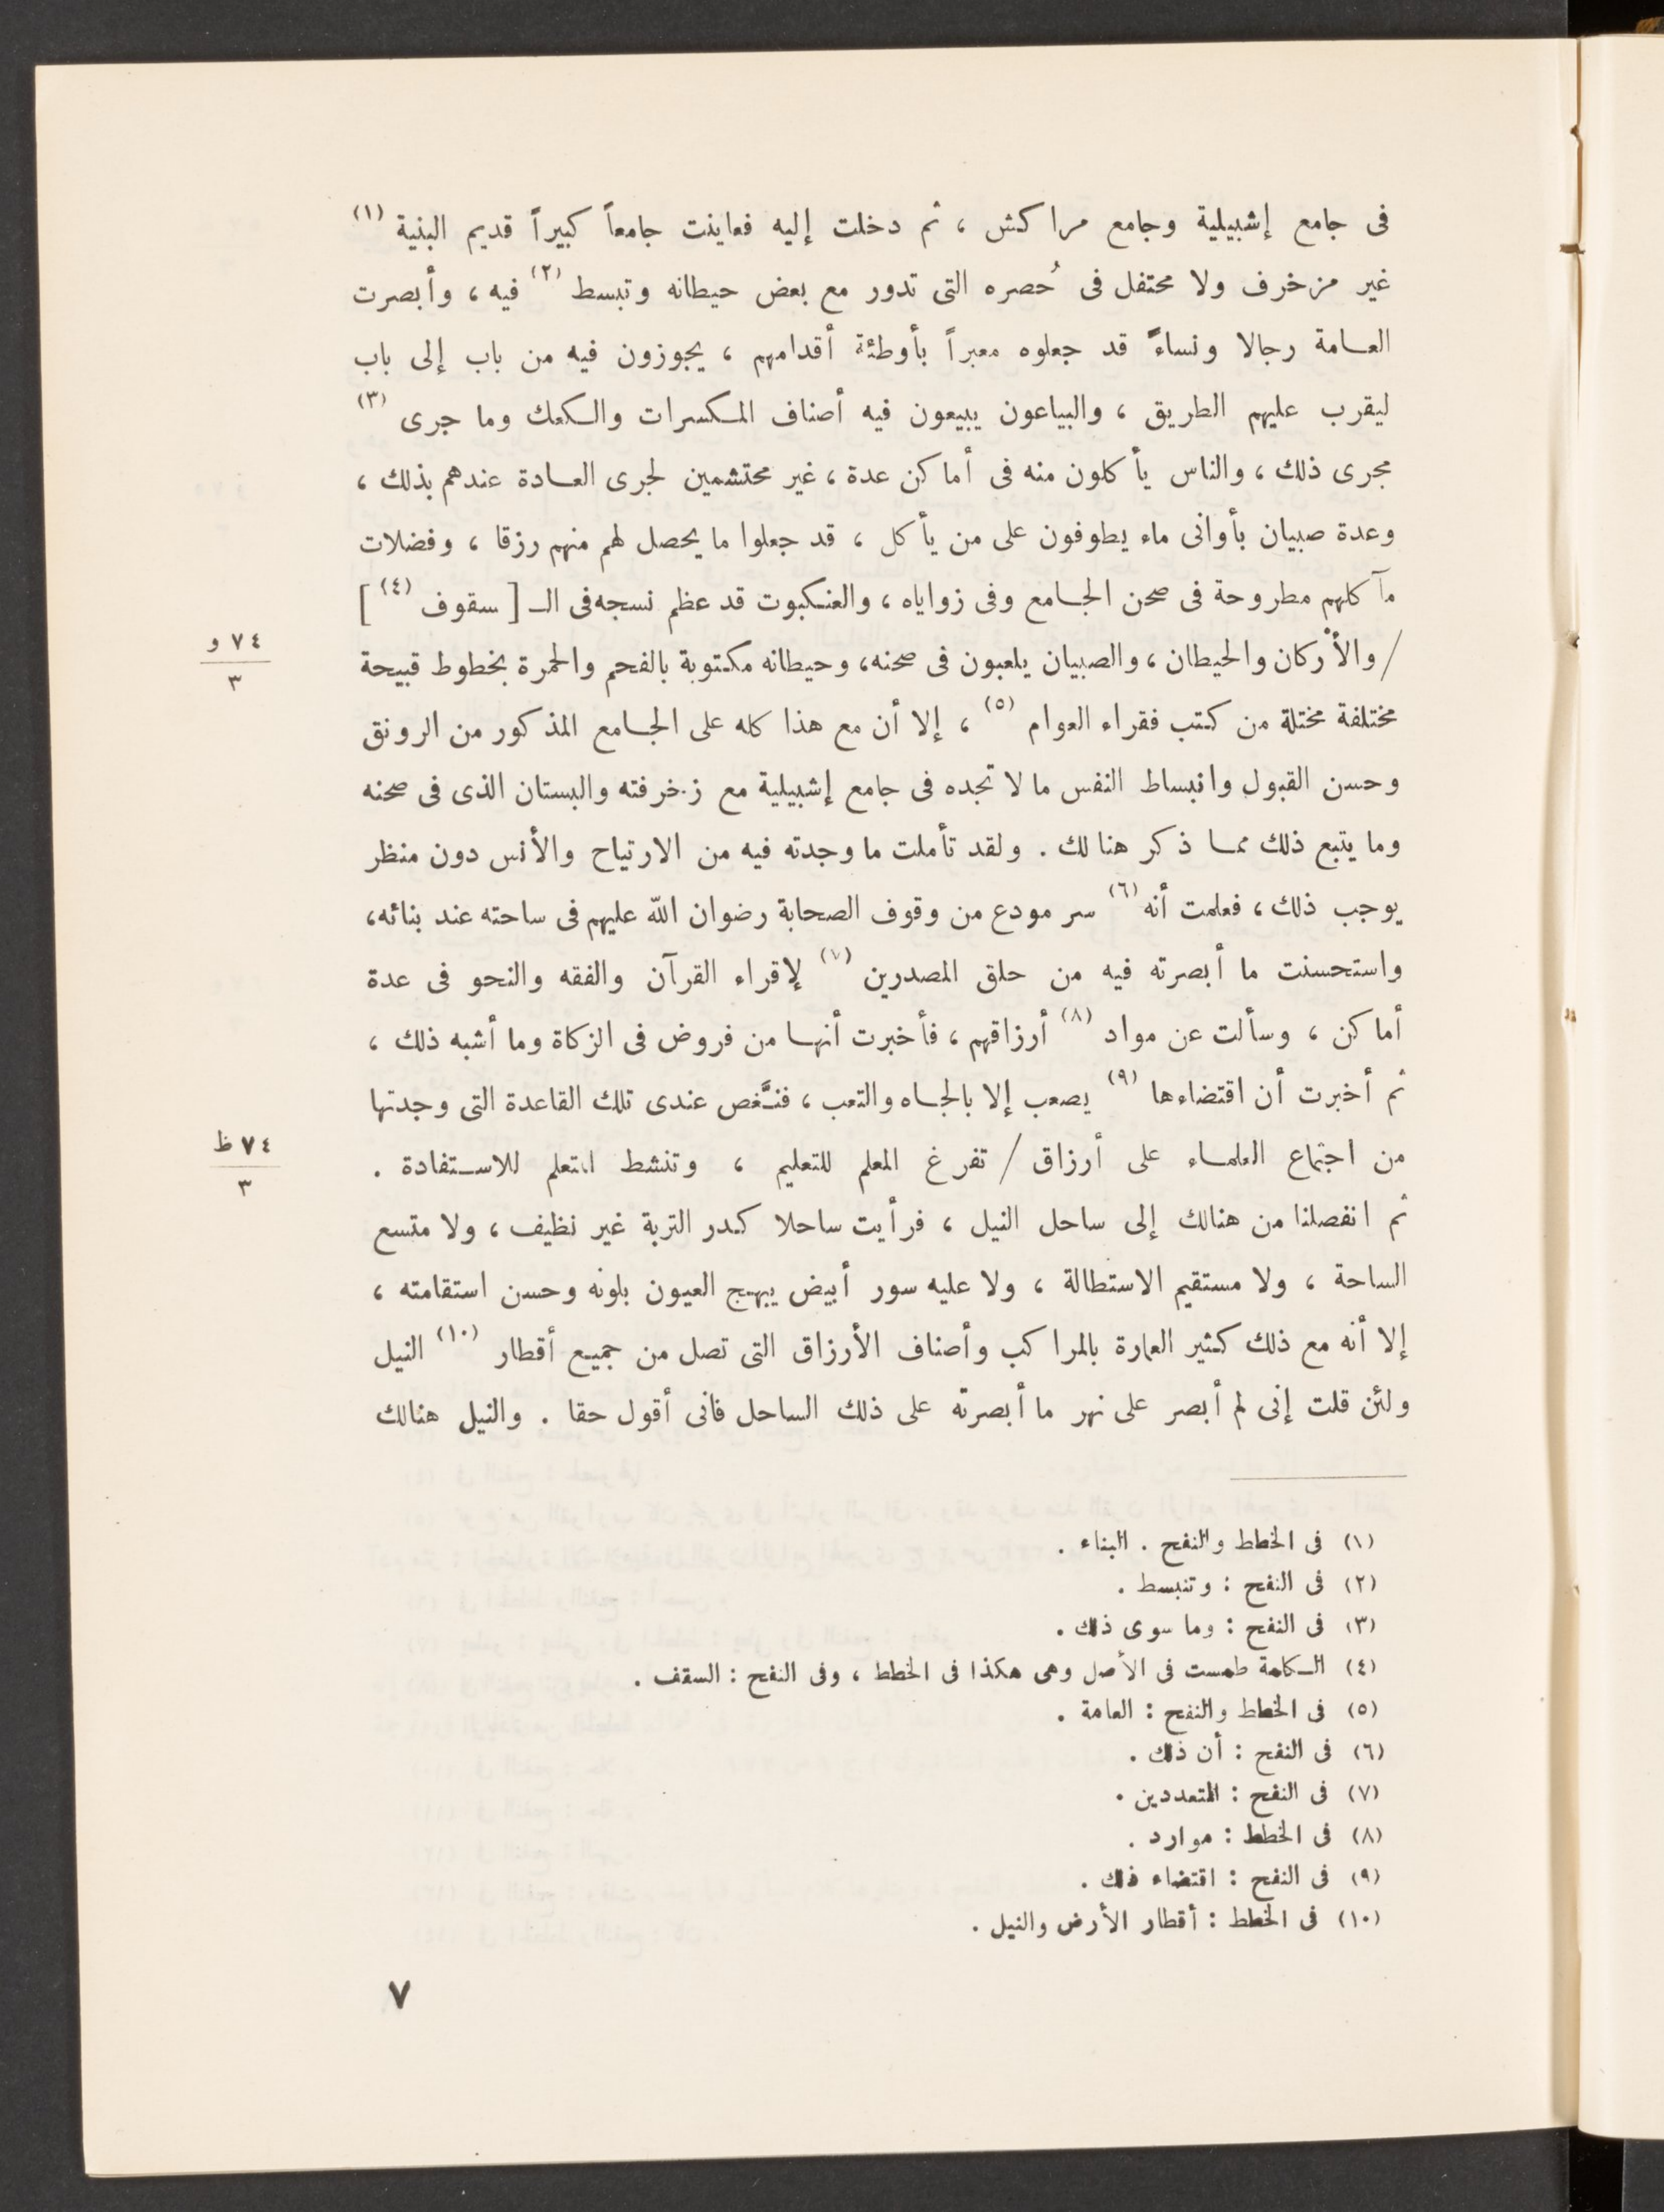 فى جامع إشبيلية وجامع مراكش ، ثم دخلت إليه فعاينت جامعاً كبيراً قديم البنية (١)
غير مزخرف ولا محتفل فى حُصره التى تدور مع بعض حيطانه وتبسط (٢) فيه ، وأبصرت
العامة رجالا ونساءً قد جعلوه معبراً بأوطئة أقدامهم ، يجوزون فيه من باب إلى باب
ليقرب عليهم الطريق ، والبياعون يبيعون فيه أصناف المكسرات والكعك وما جرى (٣)
مجرى ذلك ، والناس يأكلون منه فى أماكن عدة ، غير محتشمين لجرى العادة عندهم بذلك ،
وعدة صبيان بأوانى ماء يطوفون على من يأكل ، قد جعلوا ما يحصل لهم منهم رزقا ، وفضلات
مآكلهم مطروحة فى صحن الجامع وفى زواياه ، والعنكبوت قد عظم نسجه فى الـ [ سقوف (٤) ]
٧٤ و
٣
/ والأركان والحيطان ، والصبيان يلعبون فى صحنه، وحيطانه مكتوبة بالفحم والحمرة بخطوط قبيحة
مختلفة مختلة من كتب فقراء العوام (٥) ، إلا أن مع هذا كله على الجامع المذكور من الرونق
وحسن القبول وانبساط النفس ما لا تجده فى جامع إشبيلية مع زخرفته والبستان الذى فى صحنه
وما يتبع ذلك مما ذكر هنالك . ولقد تأملت ما وجدته فيه من الارتياح والأنس دون منظر
يوجب ذلك ، فعلمت أنه (٦) سر مودع من وقوف الصحابة رضوان الله عليهم فى ساحته عند بنائه،
واستحسنت ما أبصرته فيه من حلق المصدرين (٧) لإقراء القرآن والفقه والنحو فى عدة
أماكن ، وسألت عن مواد (٨) أرزاقهم ، فأخبرت أنها من فروض فى الزكاة وما أشبه ذلك ،
ثم أخبرت أن اقتضاءها (٩) يصعب إلا بالجاه والتعب ، فنغَّص عندى تلك القاعدة التى وجدتها
٧٤ ظ
٣
من اجتماع العلماء على أرزاق / تفرغ المعلم للتعليم ، وتنشط المتعلم للاستفادة .
ثم انفصلنا من هنالك إلى ساحل النيل ، فرأيت ساحلا كدر التربة غير نظيف ، ولا متسع
الساحة ، ولا مستقيم الاستطالة ، ولا عليه سور أبيض يبهج العيون بلونه وحسن استقامته ،
إلا أنه مع ذلك كثير العمارة بالمراكب وأصناف الأرزاق التى تصل من جميع أقطار (١٠) النيل
ولئن قلت إنى لم أبصر على نهر ما أبصرته على ذلك الساحل فانى أقول حقا . والنيل هنالك
(١) فى الخطط والنفح . البناء .
(٢) فى النفح : وتنبسط .
(٣) فى النفح : وما سوى ذلك .
(٤) الكلمة طمست فى الأصل وهى هكذا فى الخطط ، وفى النفح : السقف .
(٥) فى الخطط والنفح : العامة .
(٦) فى النفح : أن ذلك .
(٧) فى النفح : المتعددين .
(٨) فى الخطط : موارد .
(٩) فى النفح : اقتضاء ذلك .
(١٠) فى الخطط : أقطار الأرض والنيل .
٧